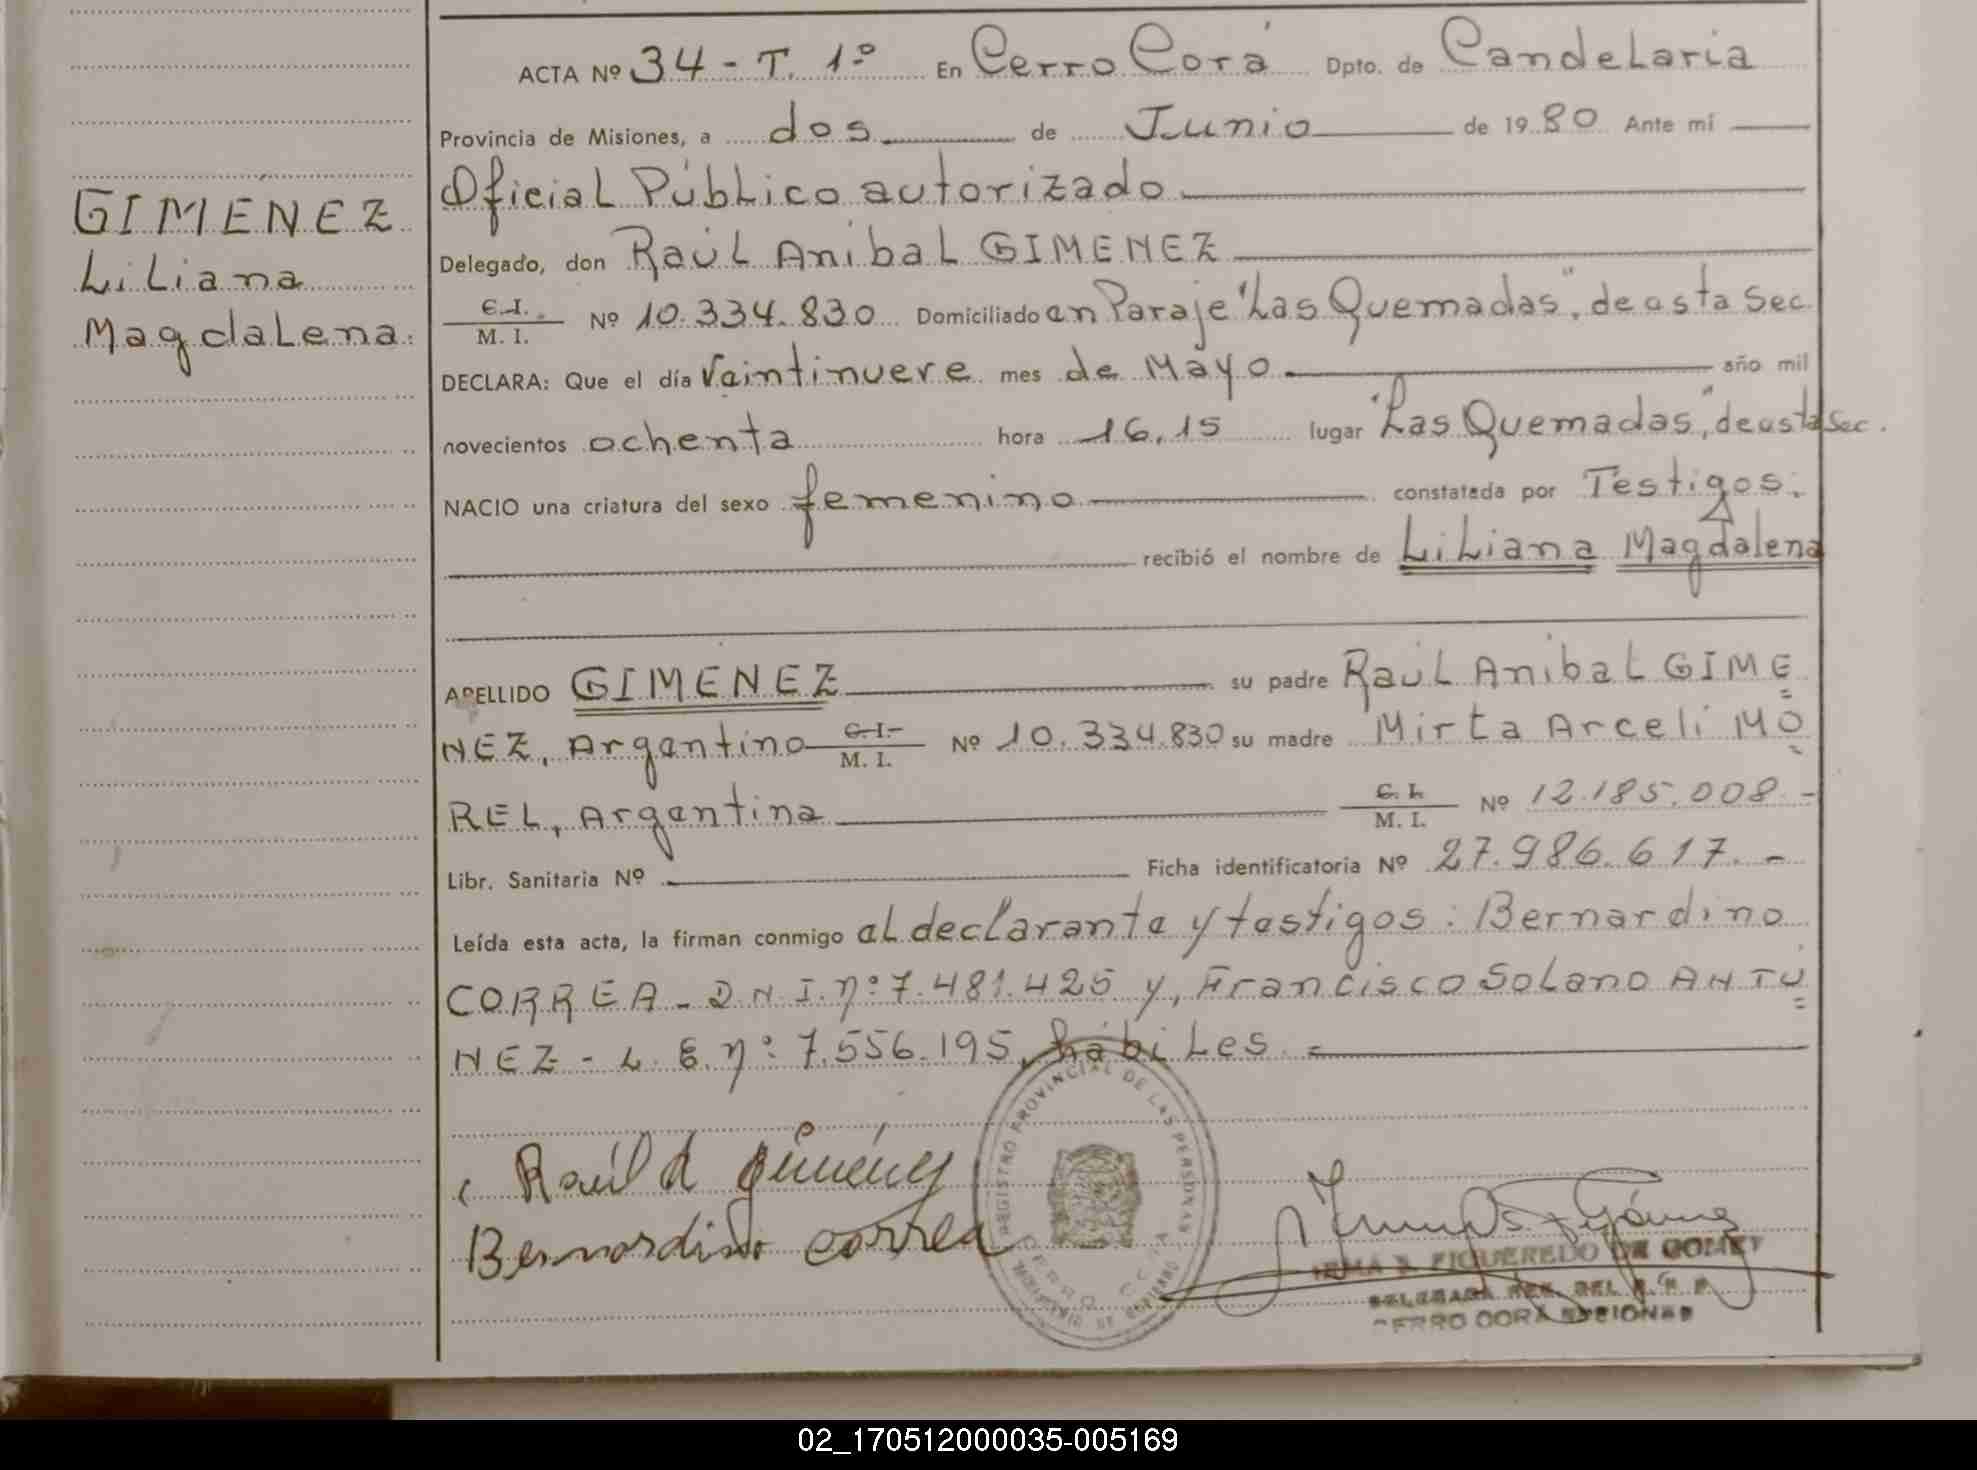 ACTA Nº 34 - T. 1º En Cerro Corá Dpto. de Candelaria
Provincia de Misiones, a dos de Junio de 1980 Ante mí
Oficial Público autorizado
GIMENEZ
Liliana
Magdalena.
Delegado, don Raúl Anibal GIMENEZ
C.I. M. I. Nº 10.334.830 Domiciliado en Paraje "Las Quemadas", de esta Sec.
DECLARA: Que el día veintinueve mes de Mayo año mil
novecientos ochenta hora 16,15 lugar "Las Quemadas", de esta Sec.
NACIO una criatura del sexo femenino constatada por Testigos.
recibió el nombre de Liliana Magdalena
APELLIDO GIMENEZ su padre Raúl Anibal GIME
NEZ, Argentino C.I. M. I. Nº 10.334.830 su madre Mirta Arceli MO
REL, Argentina C. I. M. I. Nº 12.185.008.-
Libr. Sanitaria Nº Ficha identificatoria Nº 27.986.617.-
Leída esta acta, la firman conmigo el declarante y testigos: Bernardino
CORREA - D N I. nº 7.481.425 y, Francisco Solano ANTU
NEZ - L. E. nº 7.556.195, hábiles.=
Raúl A Giménez
Bernardino Correa
REGISTRO PROVINCIAL DE LAS PERSONAS
MINISTERIO DE GOBIERNO
CERRO CORA
FIGUEREDO DE GOMEZ
CERRO CORA MISIONES
02_170512000035-005169